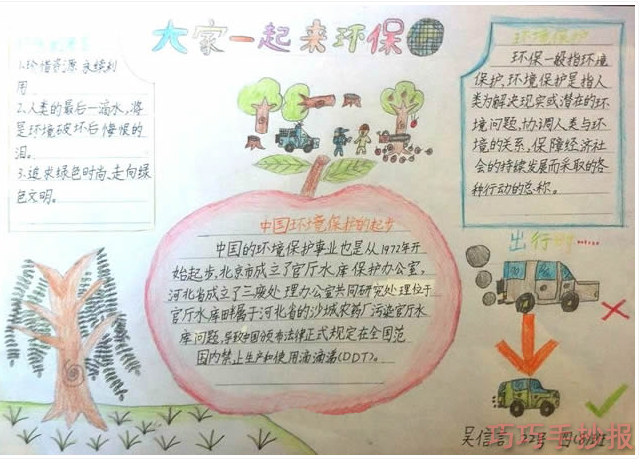 大家一起来环保
1.珍惜资源 永续利
用
2.人类的最后一滴水，将
是环境破坏后悔恨的
泪。
3.追求绿色时尚、走向绿
色文明。
环境保护
环保一般指环境
保护、环境保护是指人
类为解决现实或潜在的环
境问题，协调人类与环
境的关系，保障经济社
会的持续发展而采取的各
种行动的总称。
中国环境保护的起步
中国的环境保护事业也是从1972年开
始起步，北京市成立了官厅水库保护办公室，
河北省成立了三废处理办公室共同研究处理位于
官厅水库畔属于河北省的沙城农药厂污染官厅水
库问题，导致中国颁布法律正式规定在全国范
围内禁止生产和使用滴滴涕(DDT)。
出行时……
吴信言 22号 四(8)班
巧巧手抄报